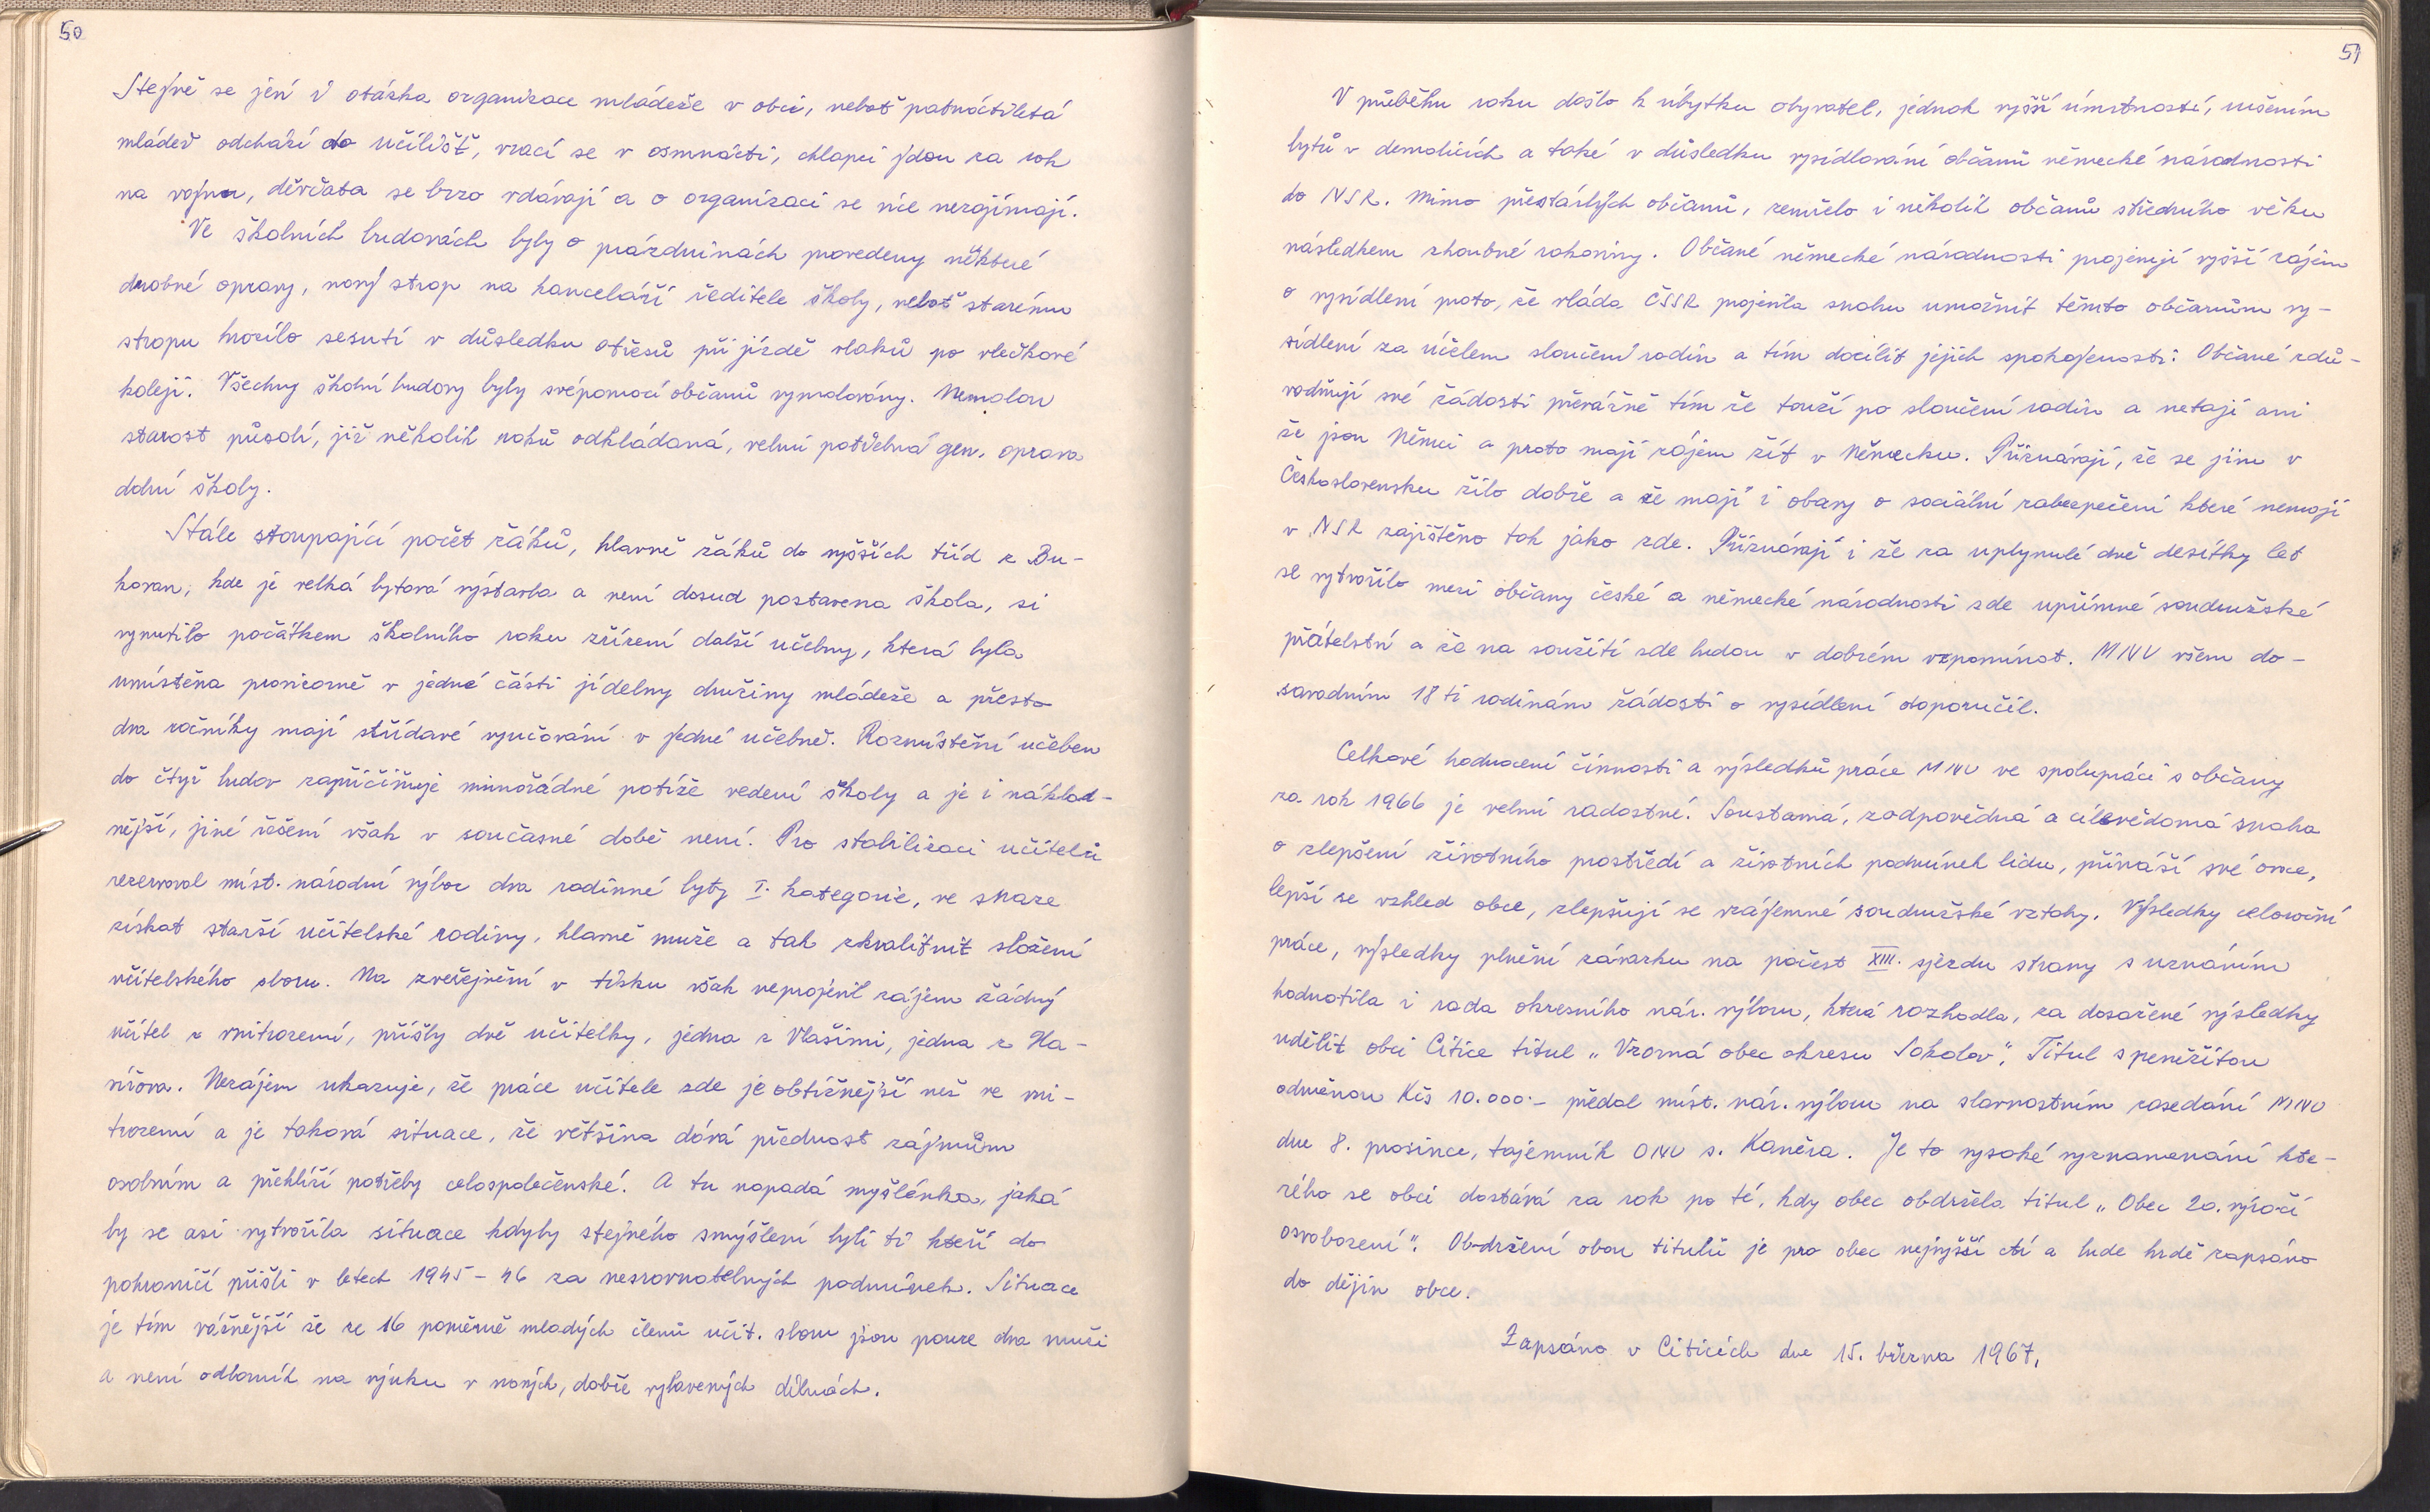 50
Stejně se jeví i otázka organizace mládeže v obci, neboť patnáctiletá
mládež odchází do učilišť, vrací se v osmnácti, chlapci jdou za rok
na vojnu, děvčata se brzo vdávají a o organizaci se více nezajímají.
Ve školních budovách byly o prázdninách provedeny některé
drobné opravy, nový strop na kanceláří ředitele školy, neboť starému
stropu hrozilo sesutí v důsledku otřesů při jízdě vlaků po vlečkové
koleji. Všechny školní budovy byly svépomocí občanů vymalovány. Nemalou
starost působí, již několik roků odkládaná, velmi potřebná gen. oprava
dolní školy.
Stále stoupající počet žáků, hlavně žáků do vyšších tříd z Bu-
kovan, kde je velká bytová výstavba a není dosud postavena škola, si
vynutilo počátkem školního roku zřízení další učebny, která byla
umístěna provizorně v jedné části jídelny družiny mládeže a přesto
dva ročníky mají střídavé vyučování v jedné učebně. Rozmístění učeben
do čtyř budov zapříčiňuje mimořádné potíže vedení školy a je i náklad-
nější, jiné řešení však v současné době není. Pro stabilizaci učitelů
rezervoval míst. národní výbor dva rodinné byty I. kategorie, ve snaze
získat starší učitelské rodiny, hlavně muže a tak zkvalitnit složení
učitelského sboru. Na zveřejnění v tisku však neprojevil zájem žádný
učitel z vnitrozemí, přišly dvě učitelky, jedna z Vlašimi, jedna z Ha-
vířova. Nezájem ukazuje, že práce učitele zde je obtížnější než ve vni-
trozemí a je taková situace, že většina dává přednost zájmům
osobním a přehlíží potřeby celospolečenské. A tu napadá myšlénka, jaká
by se asi vytvořila situace kdyby stejného smýšlení byli ti kteří do
pohraničí přišli v letech 1945-46 za nesrovnatelných podmínek. Situace
je tím vážnější že ze 16 poměrně mladých členů učit. sboru jsou pouze dva muži
a není odborník na výuku v nových, dobře vybavených dílnách.
51
V průběhu roku došlo k úbytku obyvatel, jednak vyšší úmrtností, rušením
bytů v demolicích a také v důsledku vysídlování občanů německé národnosti
do NSR. Mimo přestárlých občanů, zemřelo i několik občanů středního věku
následkem zhoubné rakoviny. Občané německé národnosti projevují vyšší zájem
o vysídlení proto, že vláda ČSSR projevila snahu umožnit těmto občanům vy-
sídlení za účelem sloučení rodin a tím docílit jejich spokojenosti. Občané zdů-
vodňují své žádosti převážně tím že touží po sloučení rodin a netají ani
že jsou Němci a proto mají zájem žít v Německu. Přiznávají, že se jim v
Československu žilo dobře a že mají i obavy o sociální zabezpečení které nemají
v NSR zajištěno tak jako zde. Přiznávají i že za uplynulé dvě desítky let
se vytvořilo mezi občany české a německé národnosti zde upřímné soudružské
přátelství a že na soužití zde budou v dobrém vzpomínat. MNV všem do-
savadním 18 ti rodinám žádosti o vysídlení doporučil.
Celkové hodnocení činnosti a výsledků práce MNV ve spolupráci s občany
za rok 1966 je velmi radostné. Soustavná, zodpovědná a cílevědomá snaha
o zlepšení životního prostředí a životních podmínek lidu, přináší své ovoce,
lepší se vzhled obce, zlepšují se vzájemné soudružské vztahy. Výsledky celoroční
práce, výsledky plnění závazku na počest XIII. sjezdu strany s uznáním
hodnotila i rada okresního nár. výboru, která rozhodla, za dosažené výsledky
udělit obci Citice titul „Vzorná obec okresu Sokolov". Titul s peněžitou
odměnou Kčs 10.000.- předal míst. nár. výboru na slavnostním zasedání MNV
dne 8. prosince, tajemník ONV s. Kaněra. Je to vysoké vyznamenání kte-
rého se obci dostává za rok po té, kdy obec obdržela titul „Obec 20. výročí
osvobození". Obdržení obou titulů je pro obec nejvyšší ctí a bude hrdě zapsáno
do dějin obce.
Zapsáno v Citicích dne 15. března 1967.